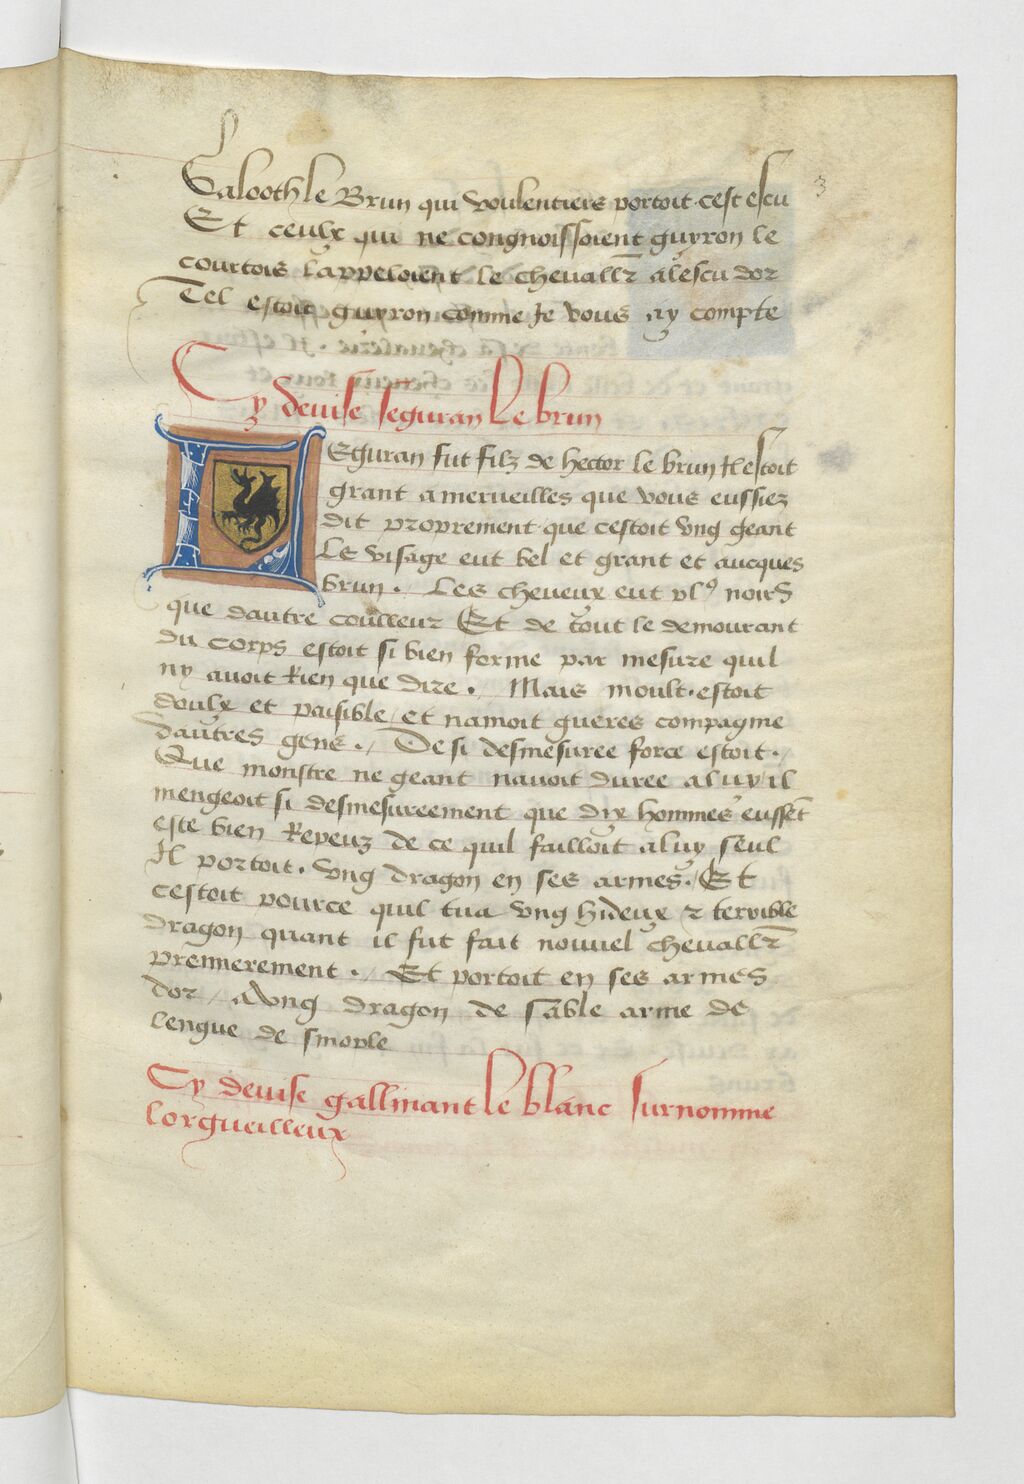 3
Galooth le Brun qui voulentiers portoit cest escu
Et ceulx qui ne congnoissoient guyron le
courtois lappeloient le chevallr alescu dor
Tel estoit guyron comme Je vous ay compte
Cy devise seguran le brun
SEguran fut filz de hector le brun Il estoit
grant a merveilles que vous eussiez
dit proprement que cestoit vng geant
Le visage eut bel et grant et aucques
brun . Les cheveux eut plꝰ noirs
que dautre coulleur Et de tout le demourant
du corps estoit si bien forme par mesure quil
ny avoit Rien que dire . Mais moult estoit
doulx et paisible / et namoit gueres compagnie
dautres gens . / De si desmesuree force estoit . /
Que monstre ne geant navoit duree a luy / il
mengeoit si desmesureement que dix hommes eussēt
este bien Repeuz de ce quil failloit a luy seul
Il portoit . vng dragon en ses armes . / Et
cestoit pource quil tua vng hideux ⁊ terrible
dragon quant il fut fait nouvel chevallr
premierement . / Et portoit en ses armes
dor / a vng dragon de sable arme de
lengue de sinople
Cy devise gallinant le blanc surnomme
lorgueilleux